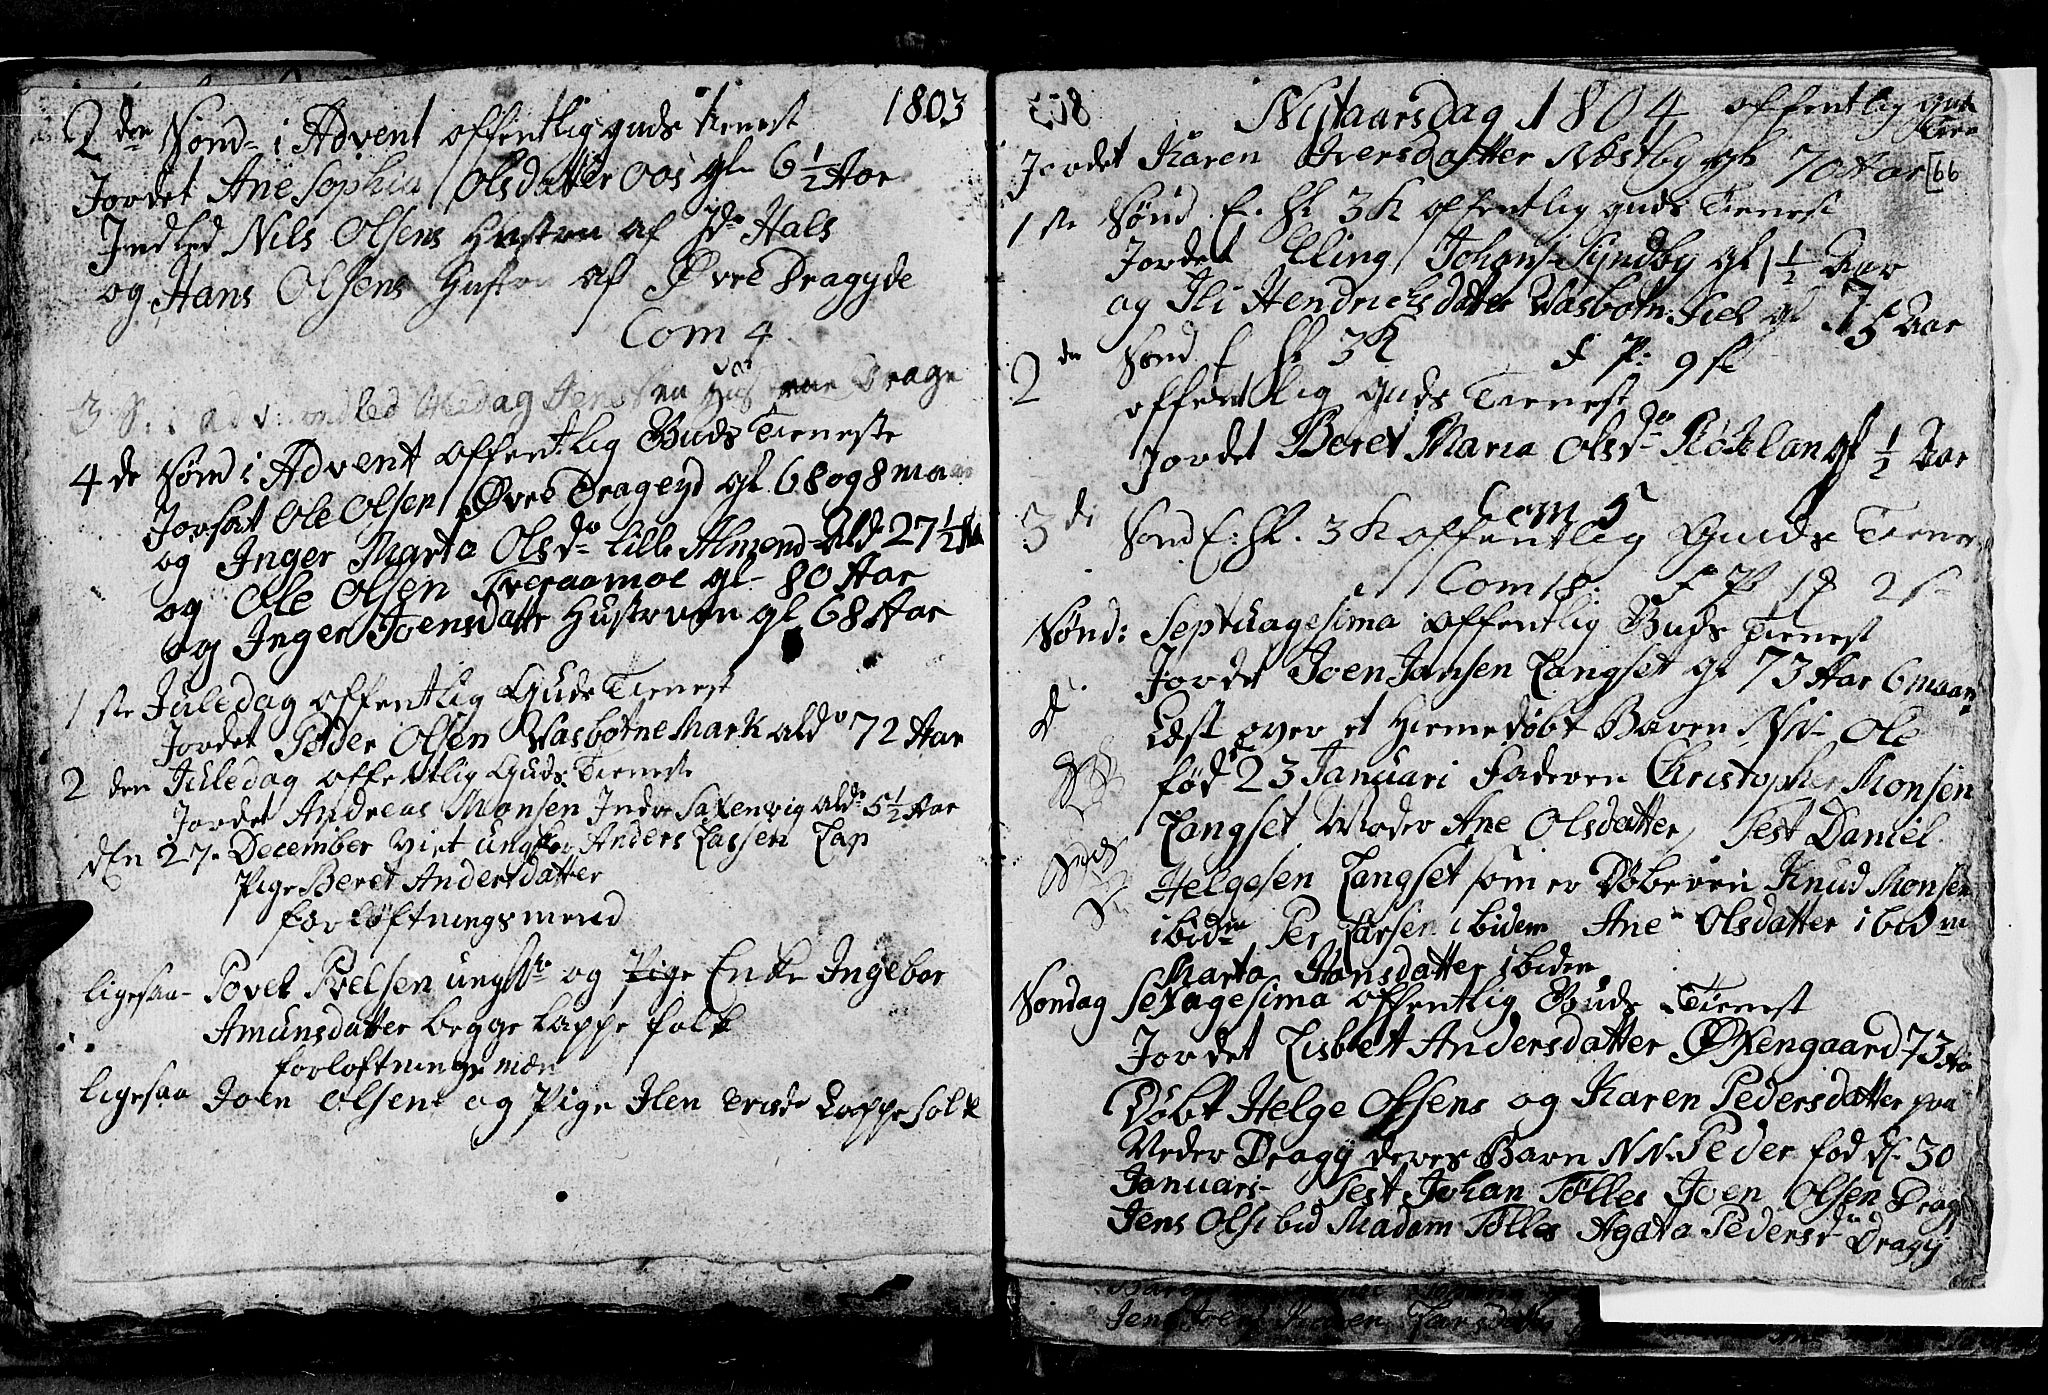 1803
2den Sønd i Advent offentlig guds tienest
Jordet Ane Sophia Olsdatter oos gl 6 1/2 Aar
Indled Nils Olsens Hustru af Hals
og Hans Olsens Hustru af Øvre Dragyde
Com 4
indled Jens Drage
4de Sønd i Advent offentlig Guds Tieneste
Jorsat Ole Olsen Øvre Drageyd gl 68 og 8 maa
og Inger Marta Olsdr Lille Almend Ald 27 1/2
og Ole Olsen Tveraamoe gl 80 Aar
og Inger Joensdattr Hustruen gl 68 Aar
1ste Juledag offentlig Guds Tienest
Jordet Peder Olsen Wasbotne Mark ald 72 Aar
2den Juledag offentlig Guds Tieneste
Jordet Andreas Monsen Indre Saxenvig ald 5 1/2 Aar
den 27. December viet ungkar Anders Lassen Lap
Pige Beret Andersdatter
forløftningsmend
ligesaa Povel Povelsen ungkr og Pige Enke Ingebor
Amunsdatter begge Lappe folk
forloftnings mæn
ligesaa Joen Olsen og Pige Elen Lappe folk
Nytaarsdag 1804 offentlig Guds
Tien
Jordet Karen Iversdatter Næstby gl 70 Aar [66
1ste Sønd E. H 3 K offentlig guds Tienest
Jordet Elling Johans Syndby gl 1 1/2 Aar
og Ili Hendrichsdatter Wasbotn Fiel gl 75 Aar
2den Sønd E H 3K F P: 9 sl
offentlig Guds Tienest
Jordet Beret Maria Olsdr Røklan gl 1/2 Aar
Com 5
3di Sønd E: H. 3 K offentlig Guds Tienes
Com 18. F P 1 2 s
Sønd: Septuagesima offentlig Guds Tienest
Jordet Joen Jansen Langset gl 73 Aar 6 maan
Læst over et Hiemedøbt Baren N.N. Ole
fød 23 Januari Faderen Christopher Monsen
Langset Moder Ane Olsdatter Test Daniel
Helgesen Langset som er Døberen Knud Monsen
ibidm Per Larsen ibidem Ane Olsdatter ibidm
Marta Hansdatter ibidm
Søndag Sexagesima offentlig Guds Tienest
Jordet Lisbet Andersdatter Øxengaard 73 Aa
Døbt Helge Olsens og Karen Pedersdatter paa
Neder Dragy deres Barn N N. Peder fød d. 30
Januari Test Johan Tølles Joen Olsen Drag
Jens Ols ibid Madam Tølles Agata Pedersdr Dragy